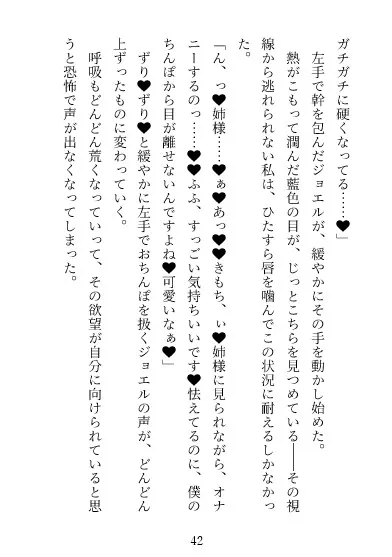 ガチガチに硬くなってる……♥」
左手で幹を包んだジョエルが、緩やかにその手を動かし始めた。
熱がこもって潤んだ藍色の目が、じっとこちらを見つめている――その視
線から逃れられない私は、ひたすら唇を噛んでこの状況に耐えるしかなかっ
た。
「ん、っ♥姉様……♥ぁ♥あっ♥♥きもち、ぃ♥姉様に見られながら、オナ
ニーするのっ……♥♥ふふ、すっごい気持ちいいです♥怯えてるのに、僕の
ちんぽから目が離せないんですよね♥可愛いなぁ♥」
ずり♥ずり♥と緩やかに左手でおちんぽを扱くジョエルの声が、どんどん
上ずったものに変わっていく。
呼吸もどんどん荒くなっていって、その欲望が自分に向けられていると思
うと恐怖で声が出なくなってしまった。
42